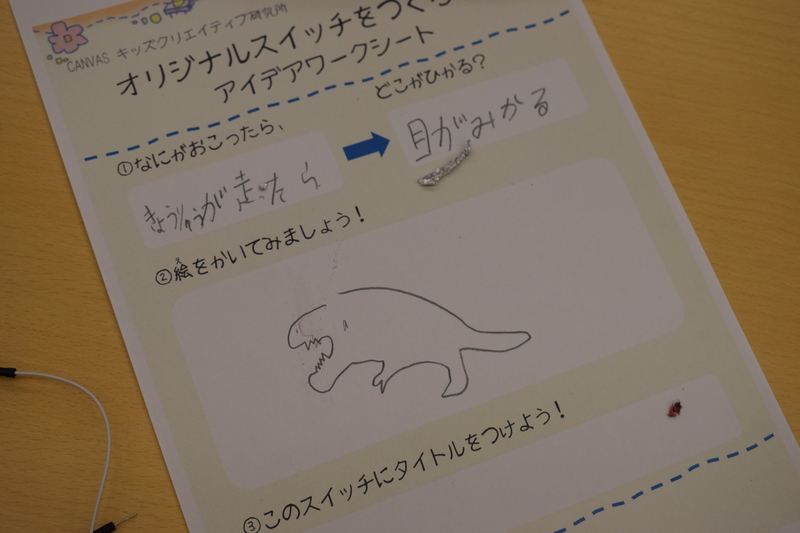 CANVAS キッズクリエイティブ研究所
オリジナルスイッチをつく
アイデアワークシート
①なにがおこったら、
どこがひかる?
きょうりゅうが走ったら
目がみかる
②絵をかいてみましょう!
え
③このスイッチにタイトルをつけよう!